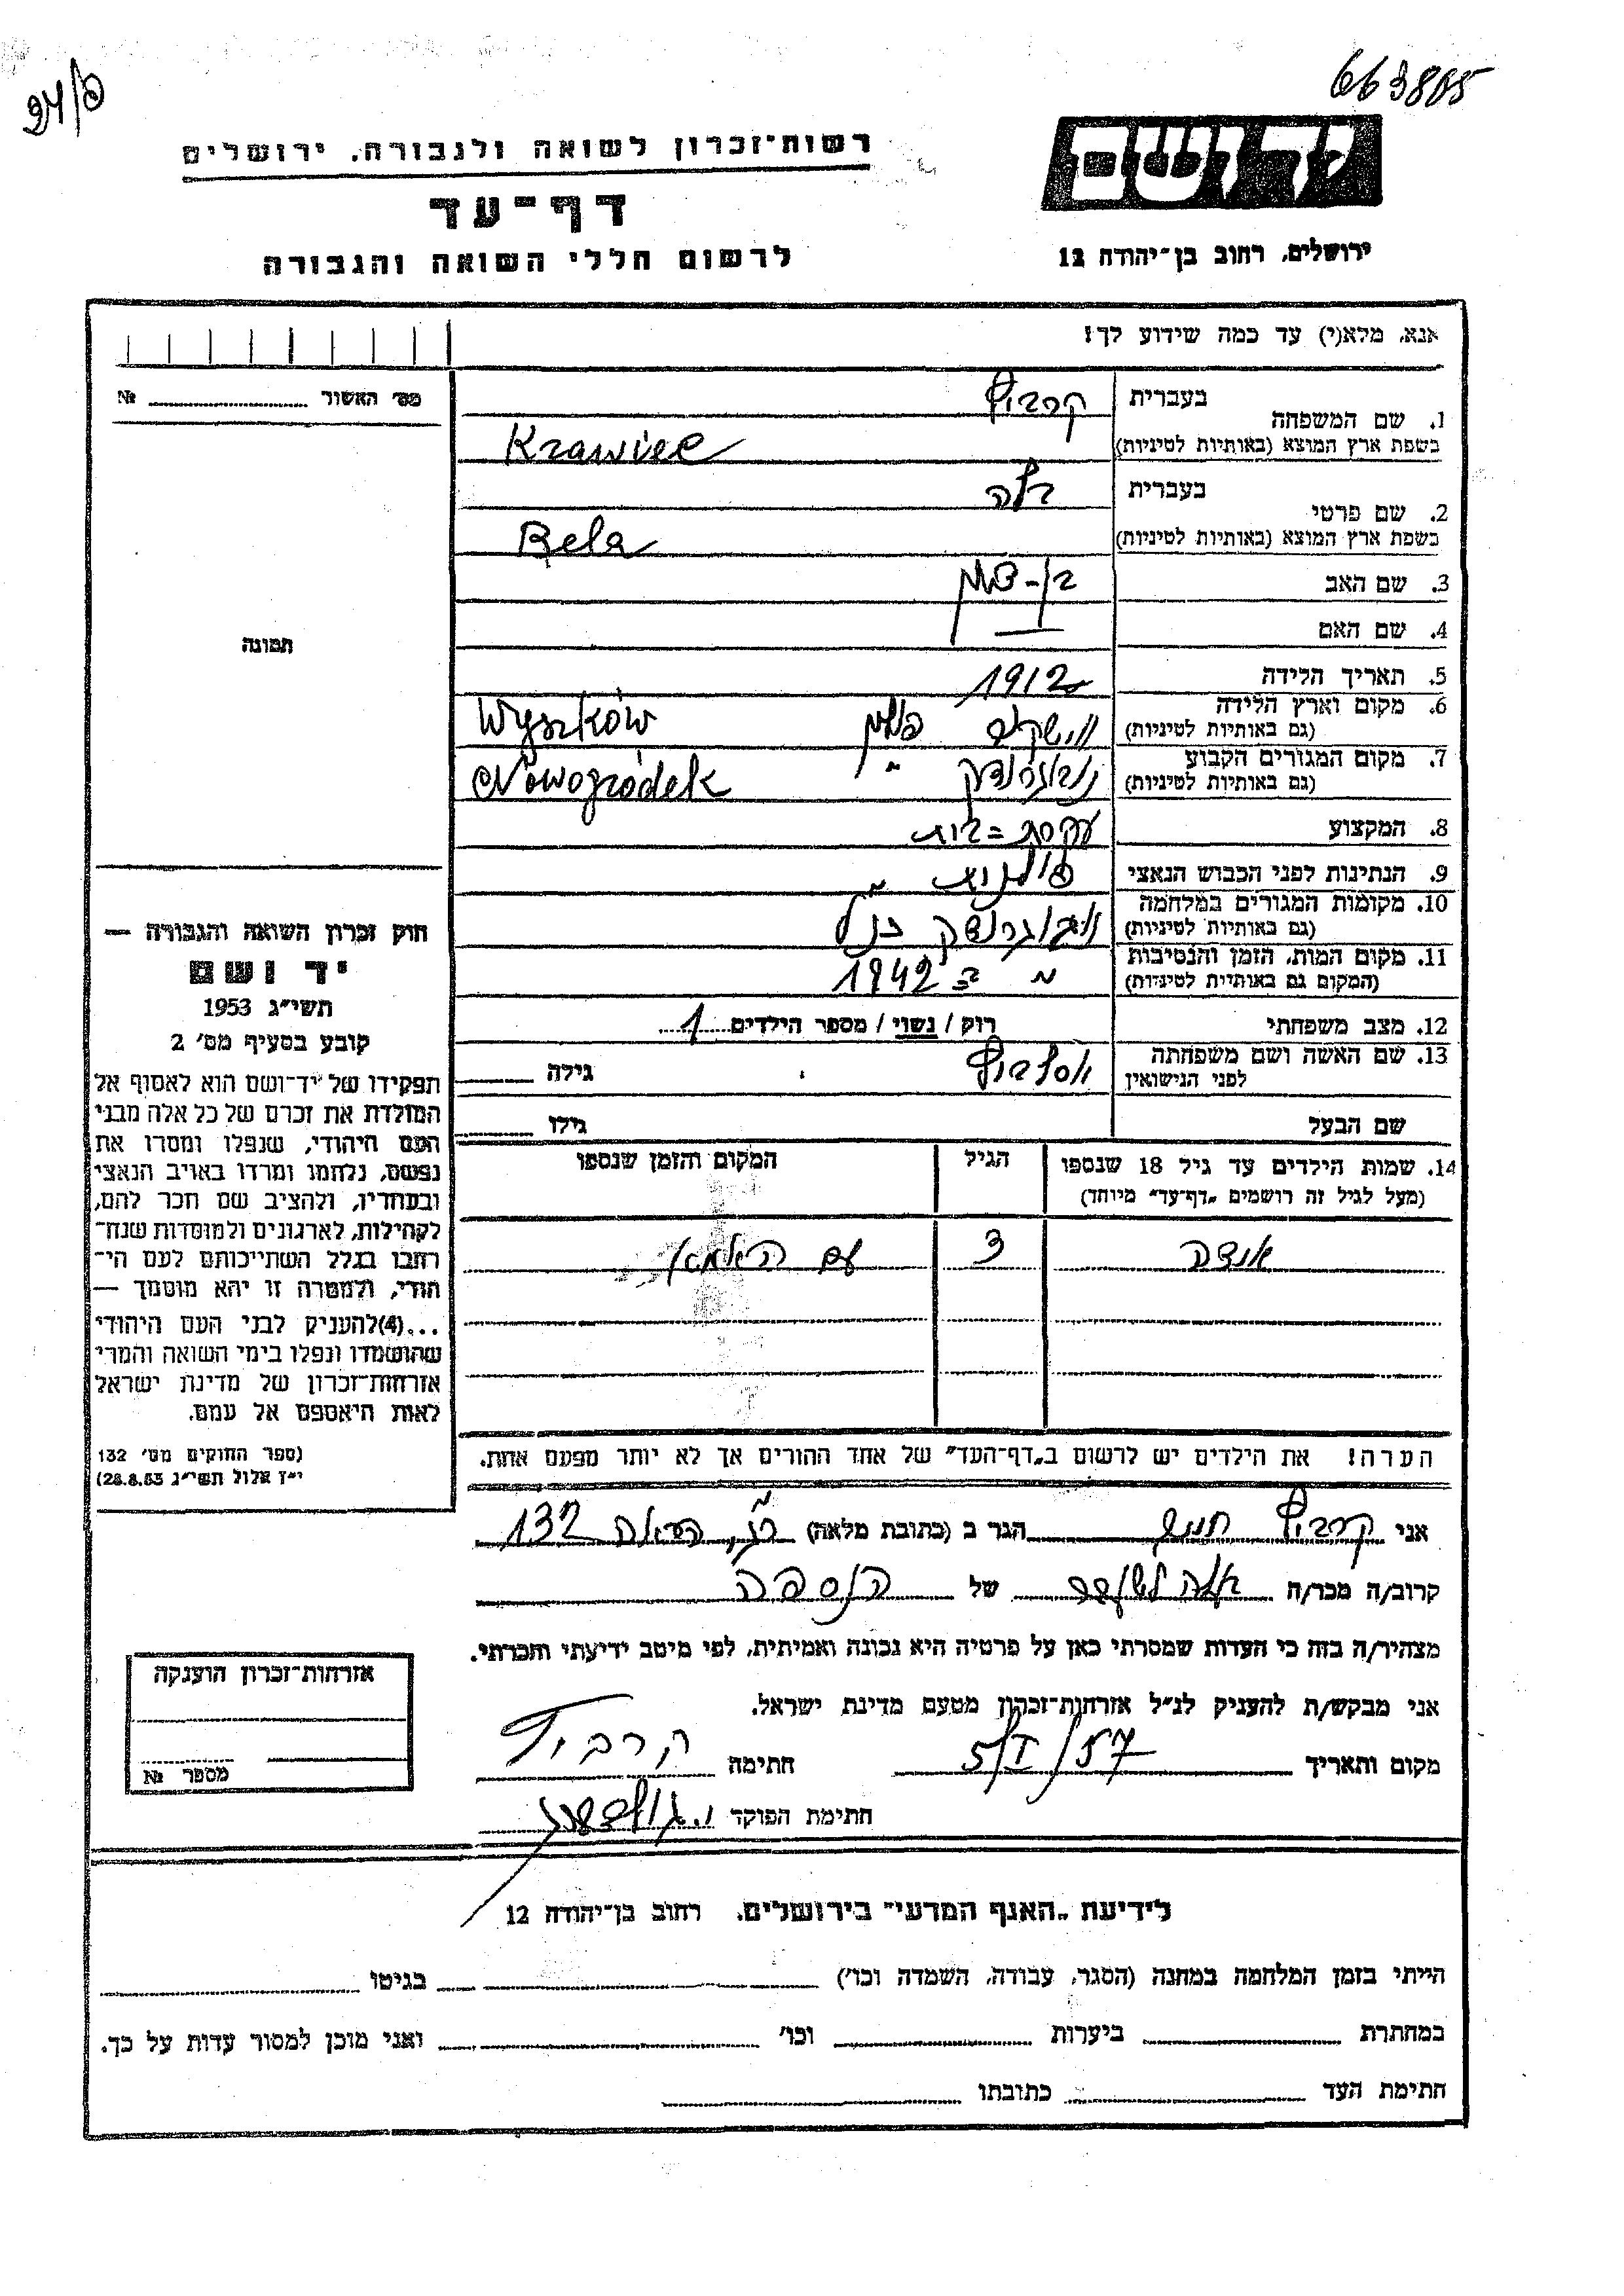 663805
94/6
יד ושם
רשות־זכרון לשואה ולגבורה, ירושלים
דף־עד
לרשום חללי השואה והגבורה
ירושלים, רחוב בן־יהודה 12
אנא, מלא(י) עד כמה שידוע לך!
מס׳ האשור № 
1. שם המשפחה
בעברית קרביץ
בשפת ארץ המוצא (באותיות לטיניות) Krawiec
2. שם פרטי
בעברית בלה
בשפת ארץ המוצא (באותיות לטיניות) Bela
3. שם האב בן-ציון
4. שם האם —
5. תאריך הלידה 1912
6. מקום וארץ הלידה
(גם באותיות לטיניות) ווישקוב פולין Wyszków
7. מקום המגורים הקבוע
(גם באותיות לטיניות) נובוגרודק " Nowogródek
8. המקצוע עקרת=בית
9. הנתינות לפני הכבוש הנאצי פולנית
10. מקומות המגורים במלחמה
(גם באותיות לטיניות) נובוגרודק כנ"ל
11. מקום המות, הזמן והנסיבות
(המקום גם באותיות לטיניות) " ב= 1942
12. מצב משפחתי רוק / נשוי / מספר הילדים 1
13. שם האשה ושם משפחתה
לפני הנישואין גילה
שם הבעל גילו
14. שמות הילדים עד גיל 18 שנספו הגיל המקום והזמן שנספו
(מעל לגיל זה רושמים „דף־עד״ מיוחד)
3 עם האמא
הערה! את הילדים יש לרשום ב„דף־העד״ של אחד ההורים אך לא יותר מפעם אחת.
תמונה
חוק זכרון השואה והגבורה —
יד ושם
תשי״ג 1953
קובע בסעיף מס׳ 2
תפקידו של יד־ושם הוא לאסוף אל
המולדת את זכרם של כל אלה מבני
העם היהודי, שנפלו ומסרו את
נפשם, נלחמו ומרדו באויב הנאצי
ובעוזריו, ולהציב שם וזכר להם,
לקהילות, לארגונים ולמוסדות שנח־
רבו בגלל השתייכותם לעם הי־
הודי, ולמטרה זו יהא מוסמך —
...(4)להעניק לבני העם היהודי
שהושמדו ונפלו בימי השואה והמרי
אזרחות־זכרון של מדינת ישראל
לאות היאספם אל עמם.
(ספר החוקים מס׳ 132
י״ז אלול תשי״ג 28.8.53)
אני קרביץ הגר ב (כתובת מלאה) הרואה 132
קרוב/ה מכר/ה של הנספה
מצהיר/ה בזה כי העדות שמסרתי כאן על פרטיה היא נכונה ואמיתית, לפי מיטב ידיעתי והכרתי.
אני מבקש/ת להעניק לנ״ל אזרחות־זכרון מטעם מדינת ישראל.
מקום ותאריך 5/I/57 חתימה קרביץ
חתימת הפוקד
אזרחות־זכרון הוענקה
מספר №
לידיעת „האגף המדעי״ בירושלים, רחוב בן־יהודה 12
הייתי בזמן המלחמה במחנה (הסגר, עבודה, השמדה וכו׳) בגיטו
במחתרת ביערות וכו׳ ואני מוכן למסור עדות על כך.
חתימת העד כתובתו